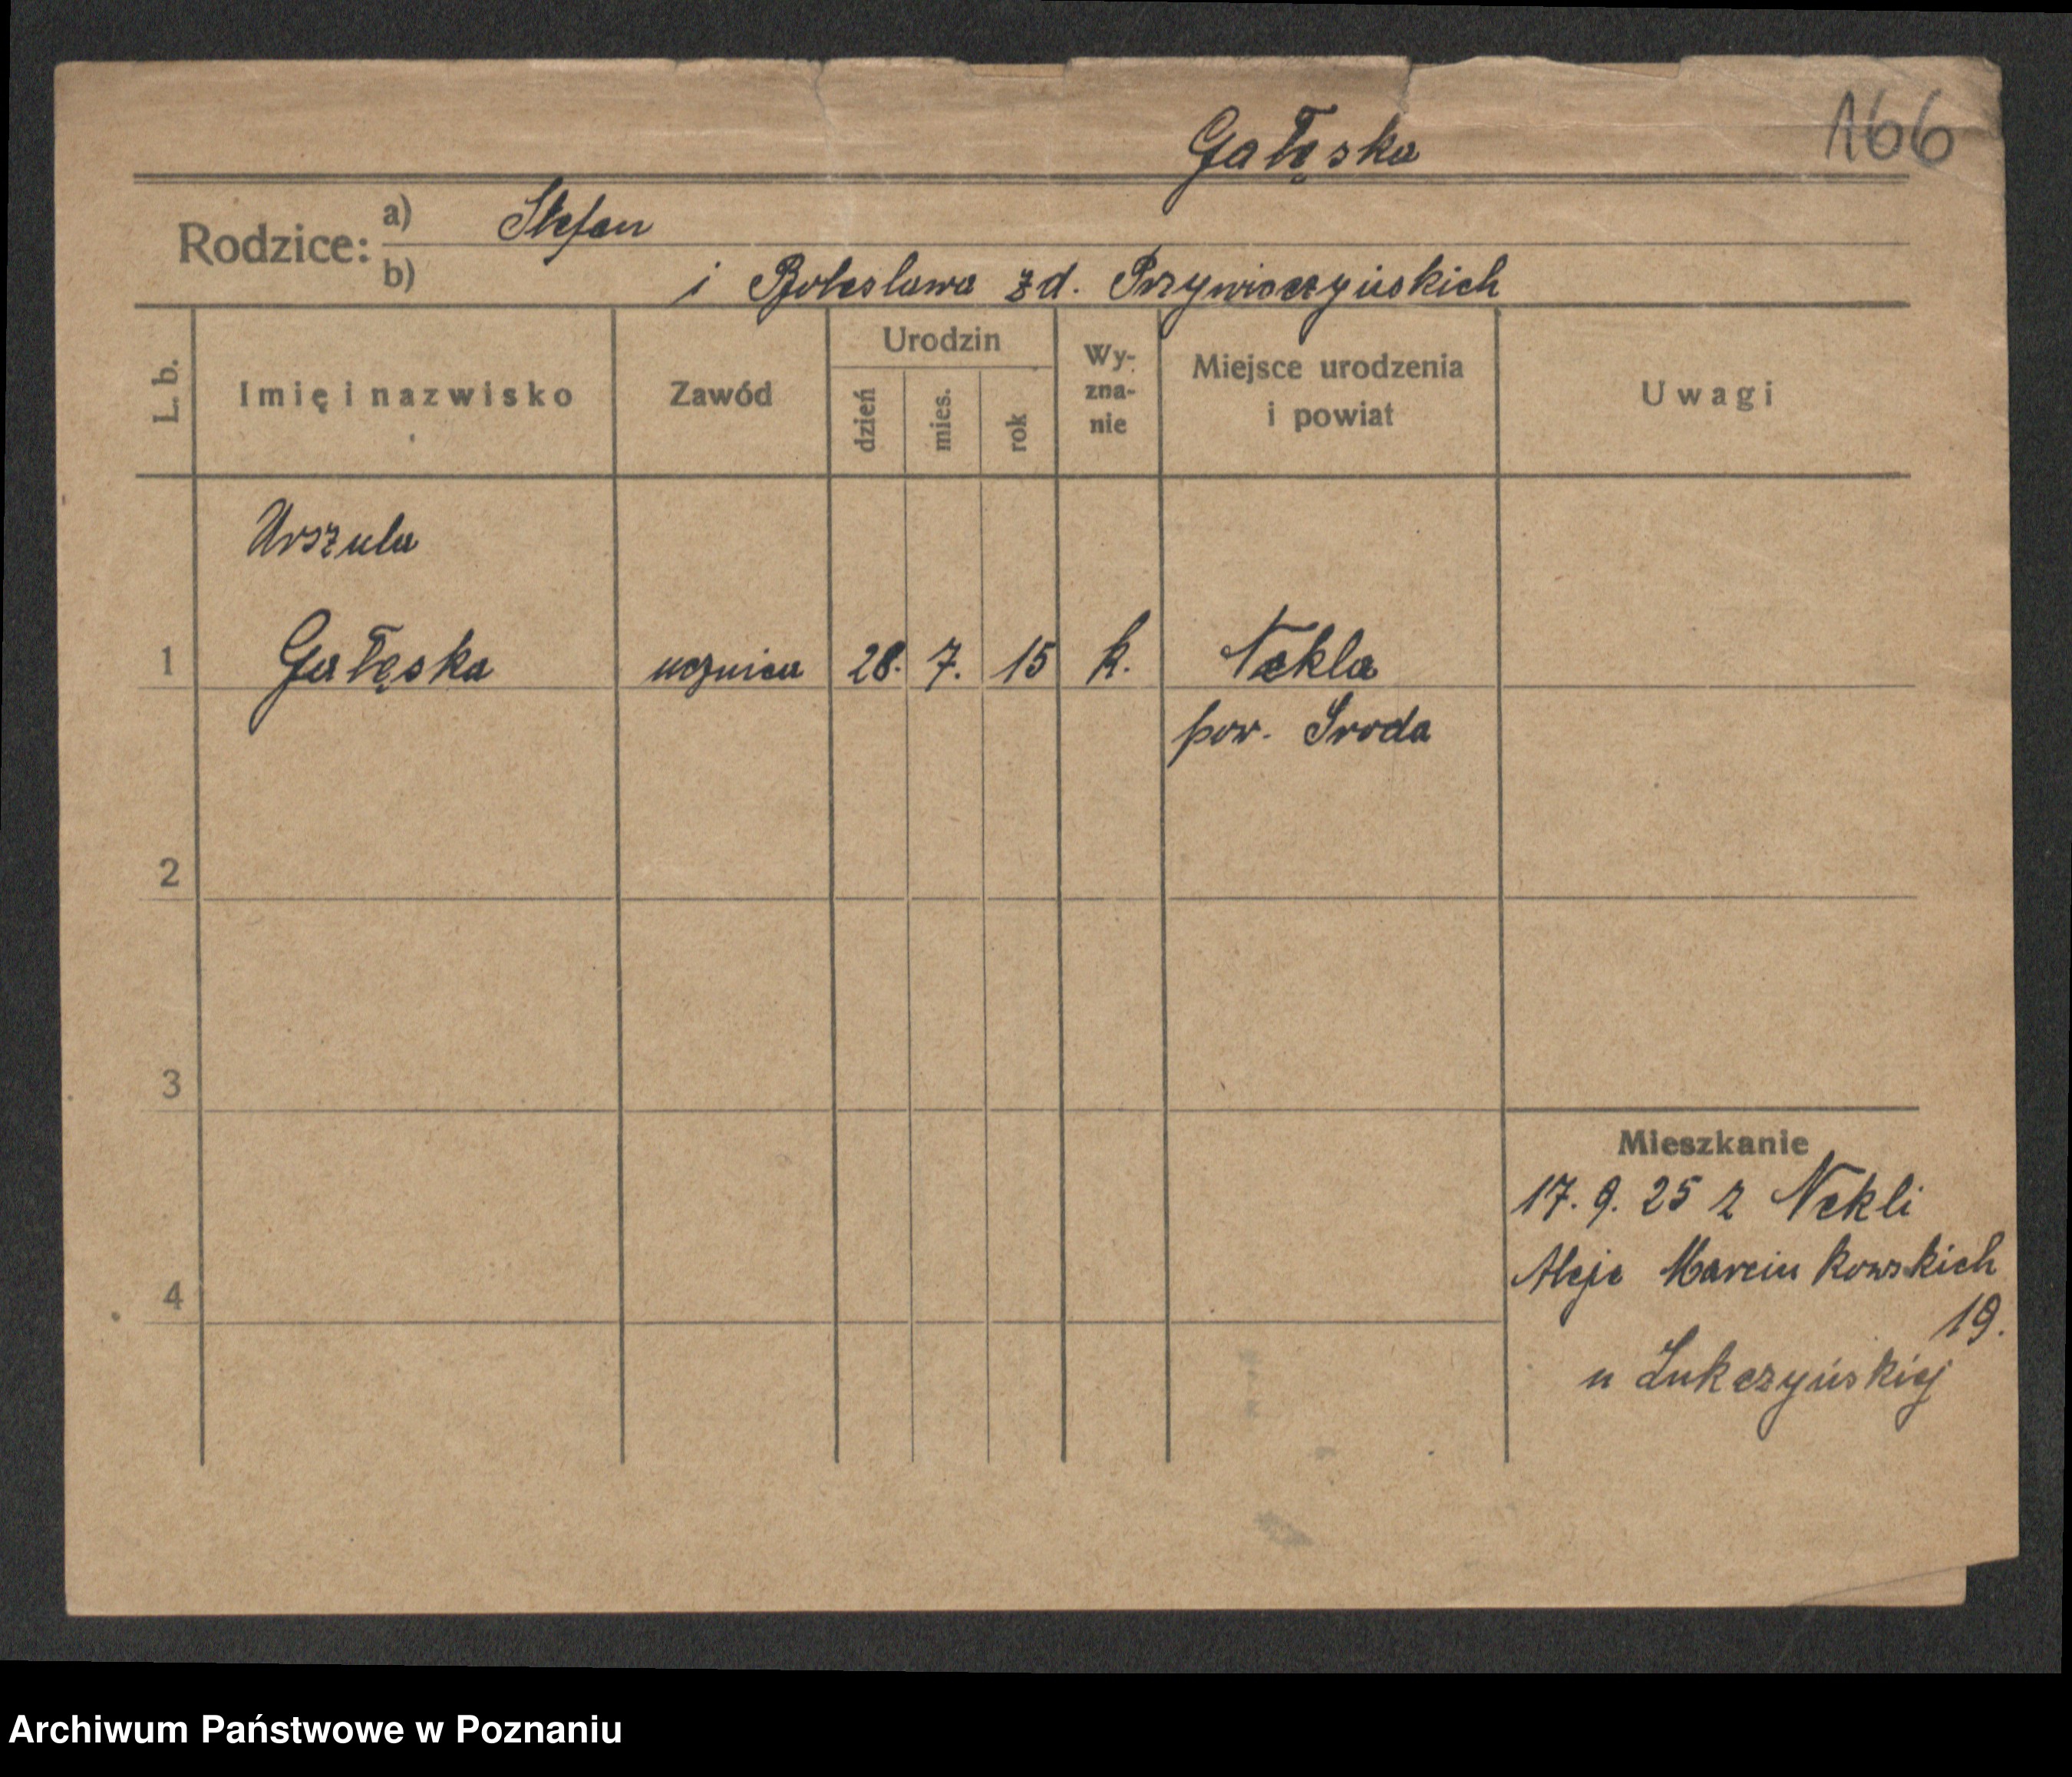 166
Gałęska
Rodzice: a) Stefan
b) i Bolesława z d. Przywieczyńskich
L. b.
Imię i nazwisko
Zawód
Urodzin
dzień
mies.
rok
Wy-
zna-
nie
Miejsce urodzenia
i powiat
Uwagi
Urszula
1 Gałęska ucznica 28. 7. 15 k. Nekla
pow. Sroda
2
3
Mieszkanie
17. 9. 25 z Nekli
Aleje Marcinkowskich
4
19.
u Lukczyńskiej
Archiwum Państwowe w Poznaniu